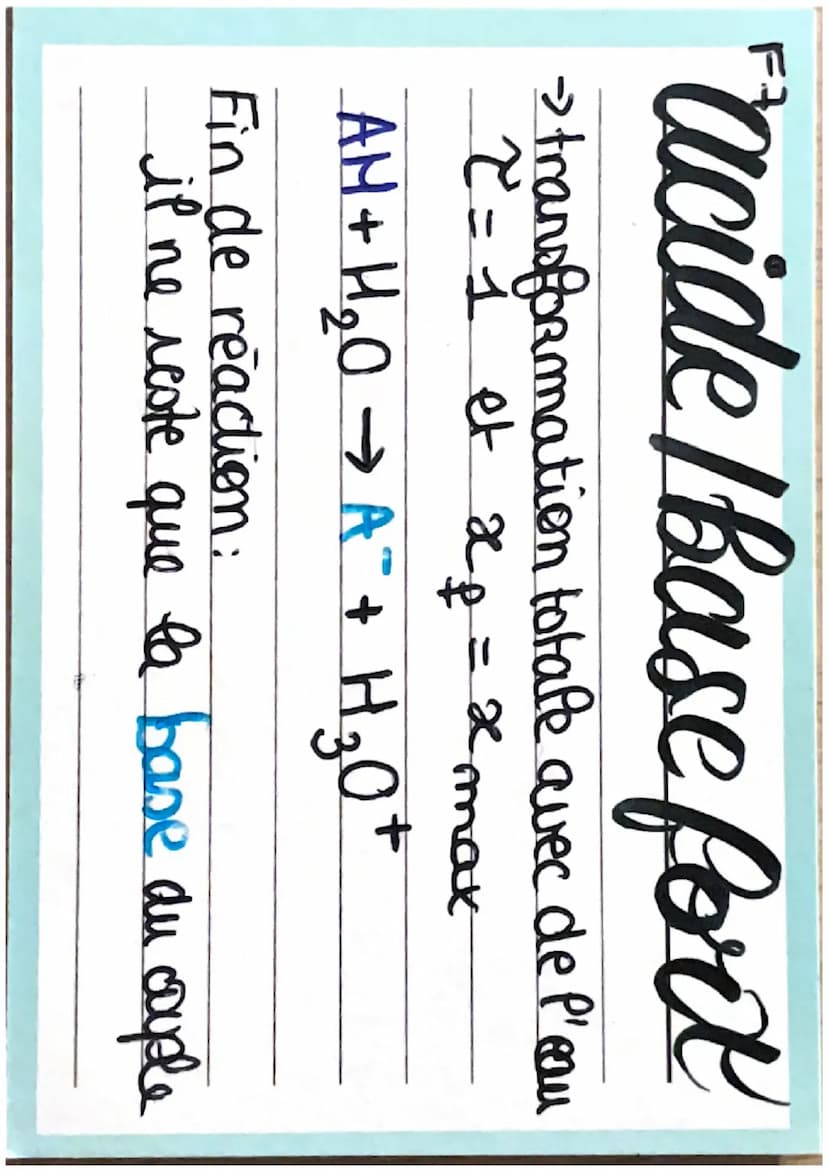 F7
acide / Base fort
→ transformation totale avec de l'eau
τ = 1 et x_f = x_max
AH + H₂O → A⁻ + H₃O⁺
Fin de réaction:
il ne reste que la base du couple